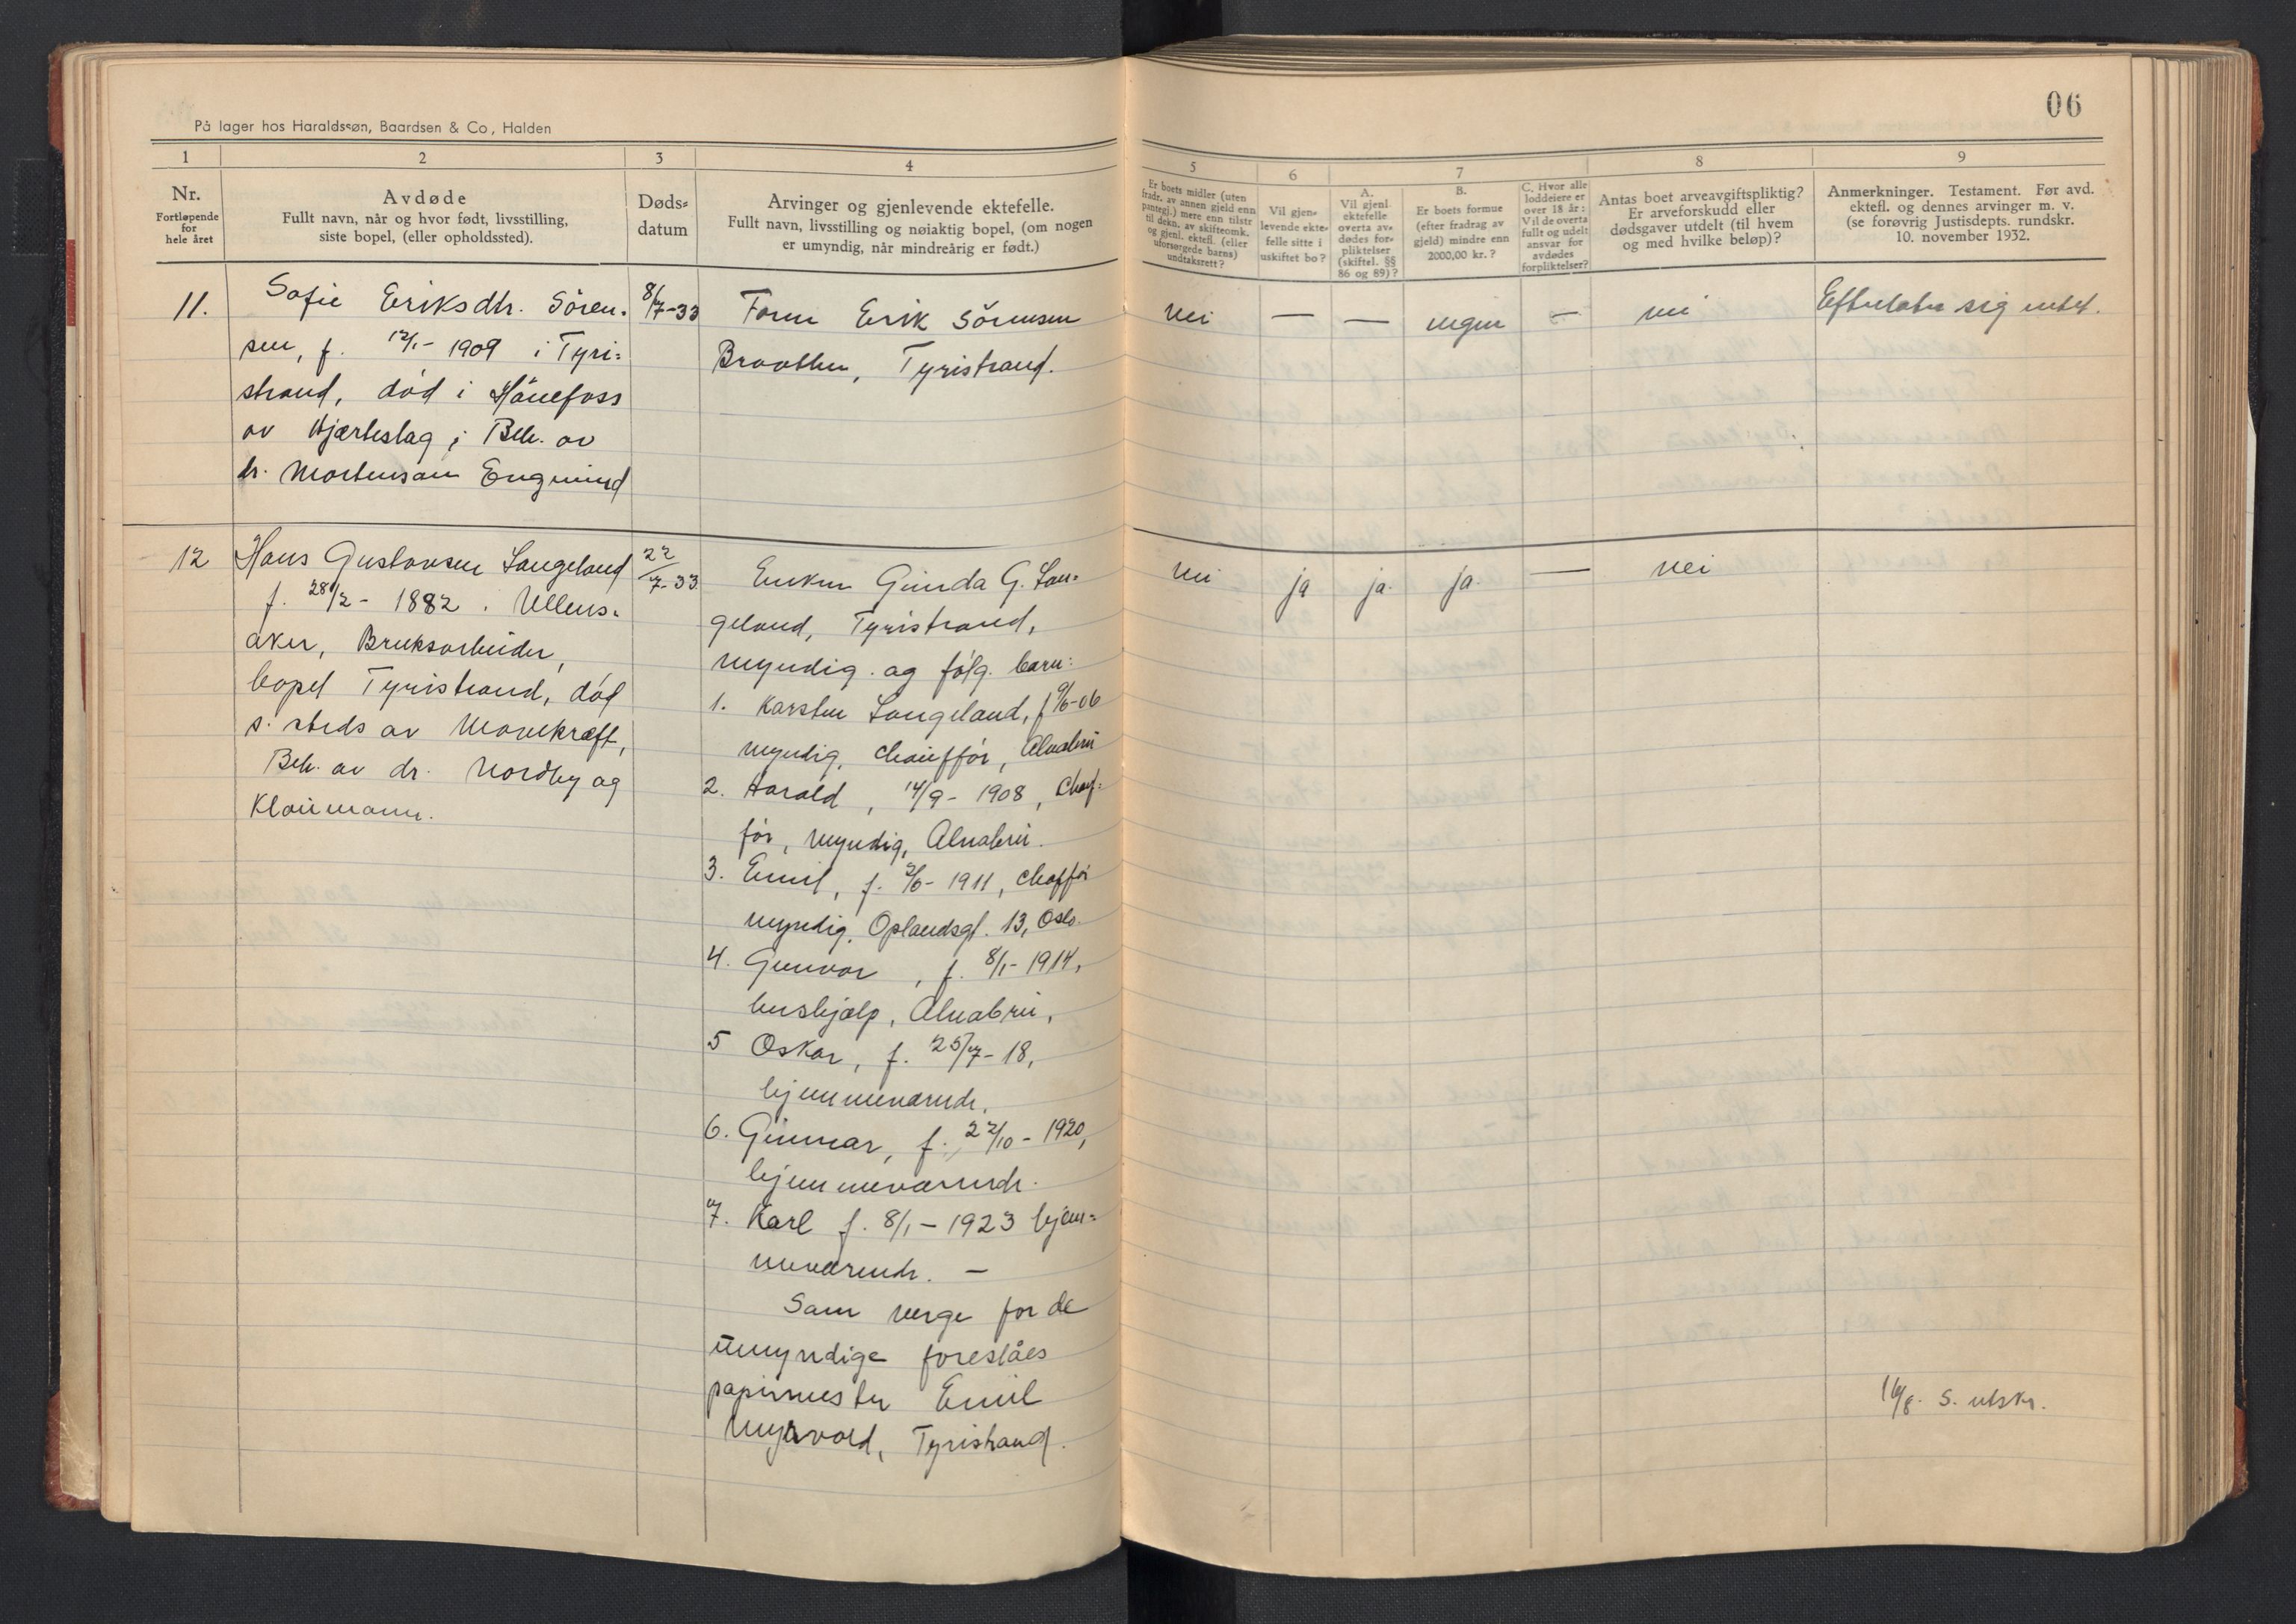 På lager hos Haraldssøn, Baardsen & Co, Halden
06
1
2
3
4
5
6
7
8
9
Nr.
Fortløpende
for
hele året
Avdøde
Fullt navn, når og hvor født, livsstilling,
siste bopel, (eller opholdssted).
Døds-
datum
Arvinger og gjenlevende ektefelle.
Fullt navn, livsstilling og nøiaktig bopel, (om nogen
er umyndig, når mindreårig er født.)
Er boets midler (uten
fradr. av annen gjeld enn
pantegj.) mere enn tilstr
til dekn. av skifteomk.
og gjenl. ektefl. (eller
uforsørgede barns)
undtaksrett?
Vil gjen-
levende ekte-
felle sitte i
uskiftet bo?
A.
Vil gjenl
ektefelle
overta av-
dødes for-
pliktelser
(skiftel. §§
86 og 89)?
B.
Er boets formue
(efter fradrag av
gjeld) mindre enn
2000,00 kr.?
C. Hvor alle
loddeiere er
over 18 år:
Vil de overta
fullt og udelt
ansvar for
avdødes
forpliktelser?
Antas boet arveavgiftspliktig?
Er arveforskudd eller
dødsgaver utdelt (til hvem
og med hvilke beløp)?
Anmerkninger. Testament. Før avd.
ektefl. og dennes arvinger m. v.
(se forøvrig Justisdepts. rundskr.
10. november 1932.
11.
Sofie Eriksdtr. Sören-
sen, f. 12/1- 1909 i Tyri-
strand, död i Hönefoss
av Hjærteslag; Beh. av
dr. Mortensen Engmind
8/7-33
Faren Erik Sörensen
Braathen, Tyristrand.
nei
—
—
ingen
—
nei
Efterlater sig intet.
12
Hans Gustavsen Langeland
f. 28/2- 1882. Ullens-
aker, Bruksarbeider,
bopel Tyristrand, död
s. steds av Mavekræft,
Beh. av dr. Nordby og
Klaumann.
22/7-33
Enken Gunda G. Lan-
geland, Tyristrand,
myndig. og fölg. barn:
1. Karsten Langeland, f 9/6-06
myndig, chaufför, Alnabru
2. Harald, 14/9- 1908, Chauf-
för, myndig, Alnabru.
3. Emil, f. 2/6- 1911, chafför
myndig, Oplandsgt. 13, Oslo.
4. Gunvor, f. 8/1- 1914,
hushjælp, Alnabru,
5 Oskar, f. 25/7- 18,
hjemmeværende.
6. Gunnar, f. 22/10- 1920,
hjemmeværende.
7. Karl f. 8/1- 1923 hjem-
meværende. —
Som verge for de
umyndige foreslåes
papirmester Emil
Myrvold, Tyristrand.
nei
ja
ja.
ja.
—
nei
16/8. S. utskr.